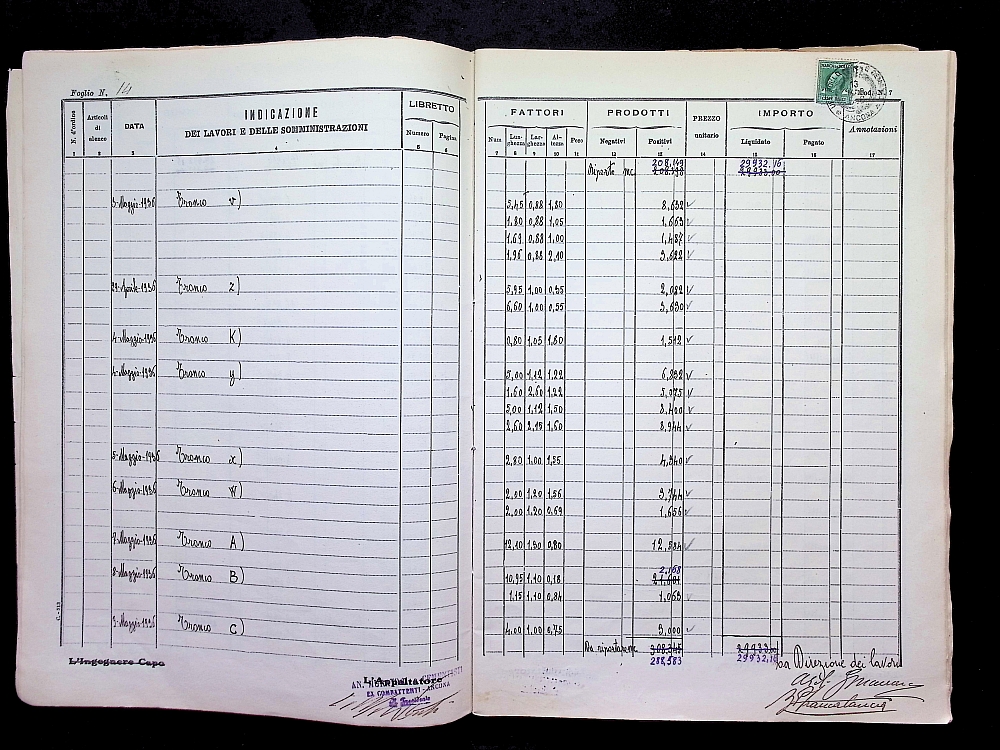 Foglio N. 14
N. d'ordine
Articoli di elenco
DATA
INDICAZIONE
DEI LAVORI E DELLE SOMMINISTRAZIONI
LIBRETTO
Numero Pagina
1 2 3 4 5 6
3-Maggio-1936 Tronco v)
29-Aprile-1936 Tronco z)
4-Maggio-1936 Tronco K)
4-Maggio-1936 Tronco y)
5-Maggio-1936 Tronco x)
6-Maggio-1936 Tronco w)
7-Maggio-1936 Tronco A)
8-Maggio-1936 Tronco B)
9-Maggio-1936 Tronco C)
L'Ingegnere Capo
L'Appaltatore
EX COMBATTENTI
ANCONA
Il Presidente
FATTORI PRODOTTI PREZZO unitario IMPORTO Annotazioni
Num Lunghezza Larghezza Altezza Peso Negativi Positivi Liquidato Pagato
7 8 9 10 11 12 13 14 15 16 17
208,149 29932,16
Riporto mc.
5,45 0,88 1,80 8,632
1,80 0,88 1,05 1,663
1,69 0,88 1,00 1,487
1,96 0,88 2,10 3,622
5,95 1,00 0,35 2,082
6,60 1,00 0,55 3,630
0,80 1,05 1,80 1,512
5,00 1,12 1,22 6,832
1,60 2,60 1,22 5,075
5,00 1,12 1,50 8,400
2,60 2,15 1,60 8,944
2,80 1,00 1,55 4,340
2,00 1,20 1,56 3,744
2,00 1,20 0,69 1,656
12,10 1,30 0,80 12,584
2,168
10,95 1,10 0,18
1,15 1,10 0,84 1,063
4,00 1,00 0,75 3,000
Da riportare mc.
288,583 29932,16
La Direzione dei lavori